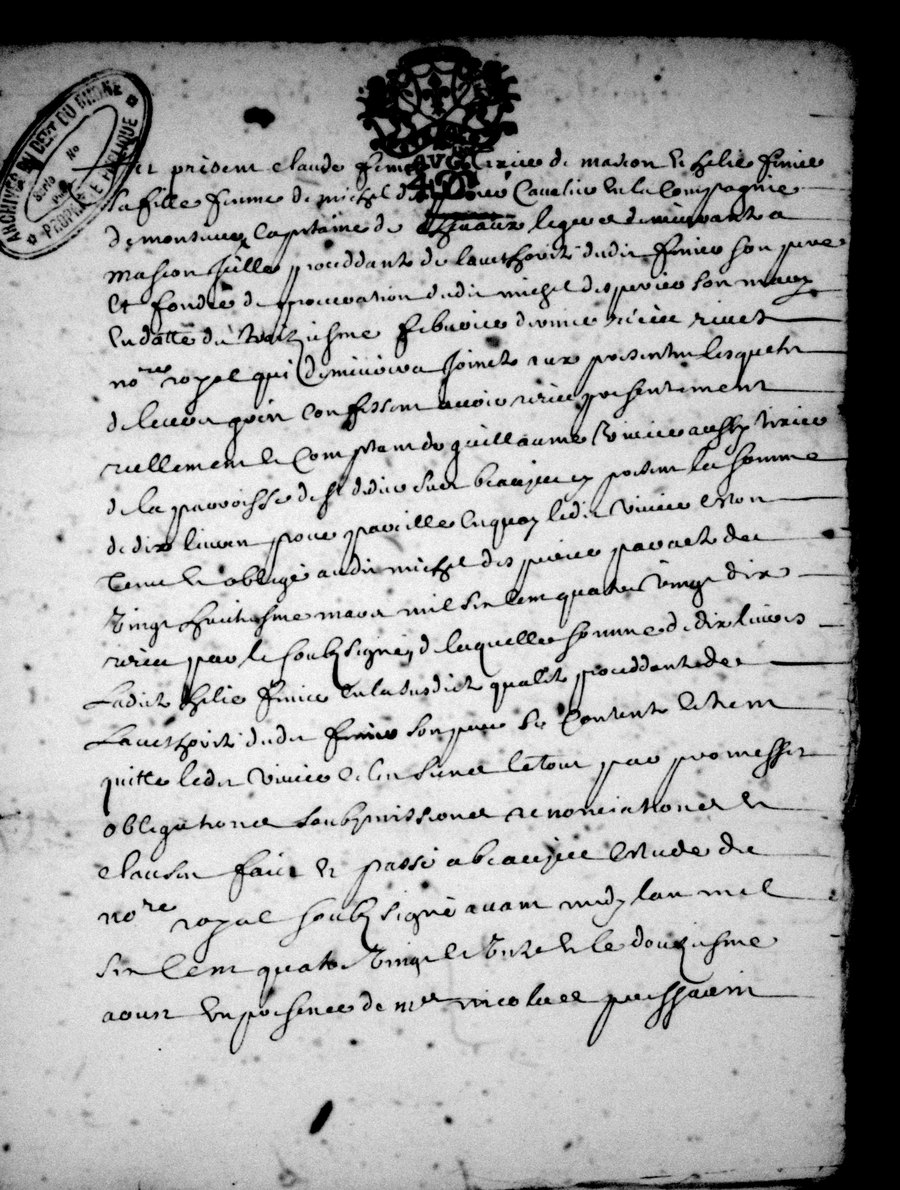 ARCHIVES DU DEPT DU RHONE
PROPRIETE PUBLIQUE
Serie No
present claude de masson & helie finice
sa fille femme de michel Cavalier en la Compagnie
de Capitaine de lequel demeurant a
Masson Jcelle proceddante de lauthorité dudit finice son pere
Et fondée de procuration dudit michel desperier son mary
En datte du febvrier devant rivet
no.re royal qui demeurera Joinct aux presentes lesquels
de leur gréz Confessent avoir presentement
reellement & Comptant de guillaume Vivier aussy
de la parroisse de st didier sur beaujeu present la somme
de dix livres pour pareille En quoy ledit Vivier Estoit
tenu & obligé audit michel des perier par acte du
Vingt huitiesme mars mil six cent quatre Vingt dix
receu par le soubzsigné de laquelle somme de dix livres
Ladicte helie finice En la susdicte qualité proceddante de
Lauthorité dudit finice son pere se Contente & tient
quitte ledit Vivier & les siens le tout par promesses
obligations soubzmissions renonciations &
clauses faict & passé a beaujeu Estude du
no.re royal soubzsigné avant midy lan mil
six Cent quatre Vingt & le douziesme
aoust En presence de m.re nicolas